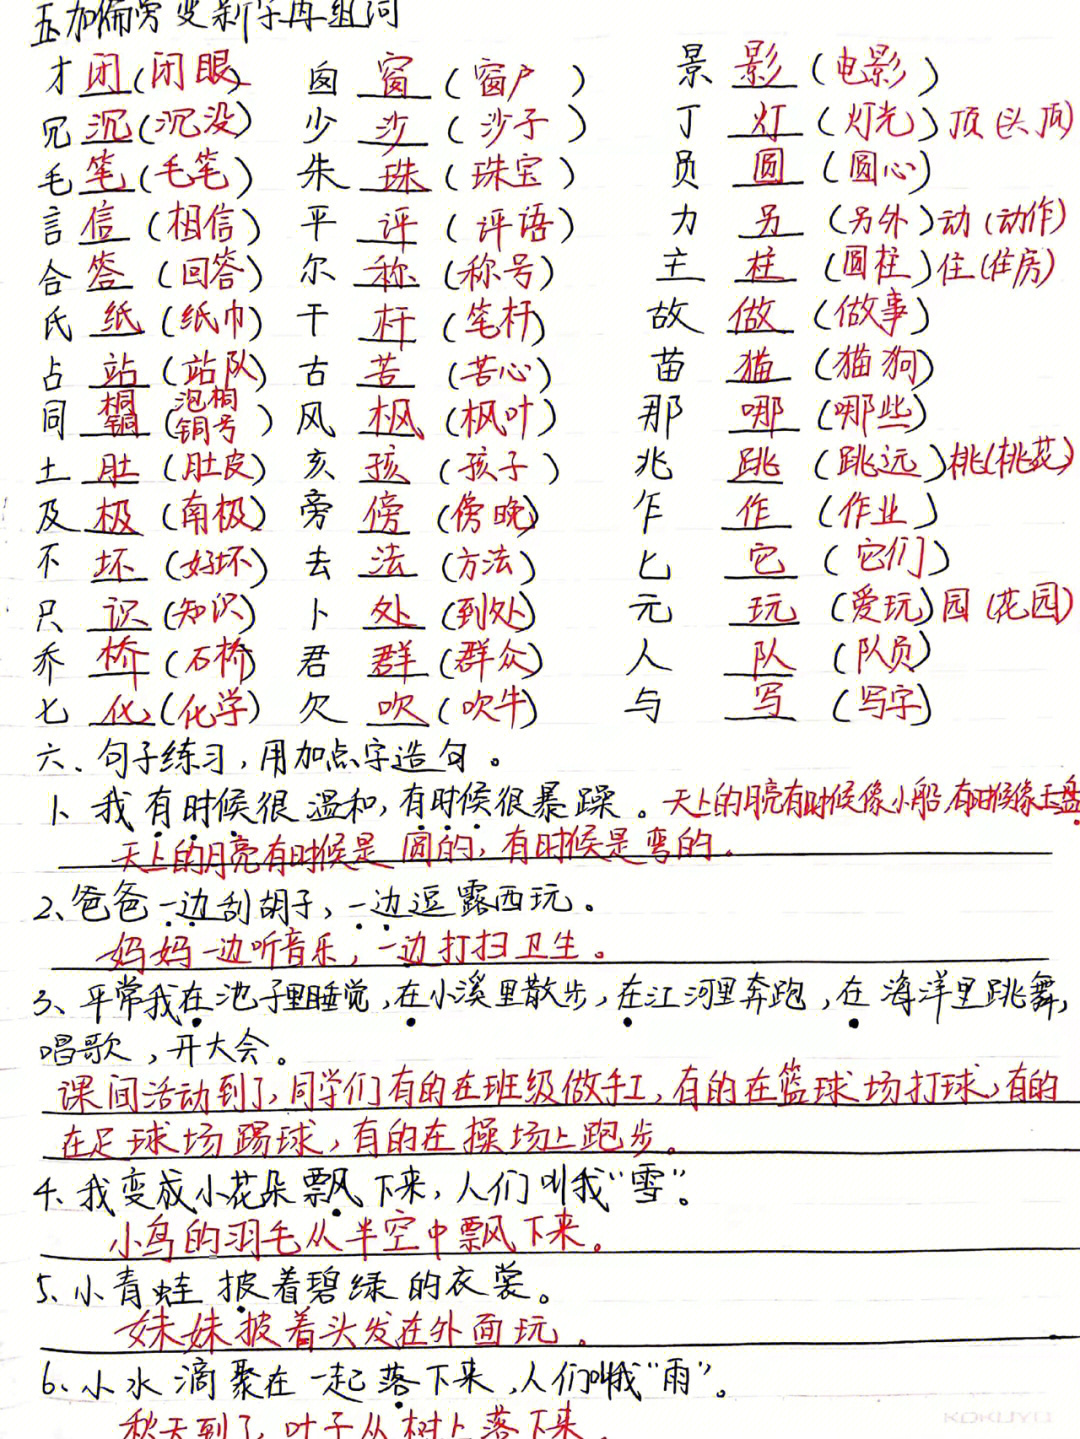 五、加偏旁变新字再组词
才 闭(闭眼) 囱 窗(窗户) 景 影(电影)
冗 沉(沉没) 少 沙(沙子) 丁 灯(灯光)顶(头顶)
毛 笔(毛笔) 朱 珠(珠宝) 员 圆(圆心)
言 信(相信) 平 评(评语) 力 另(另外)动(动作)
合 答(回答) 尔 称(称号) 主 柱(圆柱)住(住房)
氏 纸(纸巾) 干 杆(笔杆) 故 做(做事)
占 站(站队) 古 苦(苦心) 苗 猫(猫狗)
同 桐铜(泡桐铜号) 风 枫(枫叶) 那 哪(哪些)
土 肚(肚皮) 亥 孩(孩子) 兆 跳(跳远)桃(桃花)
及 极(南极) 旁 傍(傍晚) 乍 作(作业)
不 坏(好坏) 去 法(方法) 匕 它(它们)
只 识(知识) 卜 处(到处) 元 玩(爱玩)园(花园)
乔 桥(石桥) 君 群(群众) 人 队(队员)
七 化(化学) 欠 吹(吹牛) 与 写(写字)
六、句子练习,用加点字造句。
1、我有时候很温和,有时候很暴躁。天上的月亮有时候像小船,有时候像玉盘
天上的月亮有时候是圆的,有时候是弯的。
2、爸爸一边刮胡子,一边逗露西玩。
妈妈一边听音乐,一边打扫卫生。
3、平常我在池子里睡觉,在小溪里散步,在江河里奔跑,在海洋里跳舞,
唱歌,开大会。
课间活动到了,同学们有的在班级做手工,有的在篮球场打球,有的
在足球场踢球,有的在操场上跑步。
4、我变成小花朵飘下来,人们叫我“雪”。
小鸟的羽毛从半空中飘下来。
5、小青蛙披着碧绿的衣裳。
妹妹披着头发在外面玩。
6、小水滴聚在一起落下来,人们叫我“雨”。
秋天到了,叶子从树上落下来。
KOKUYO